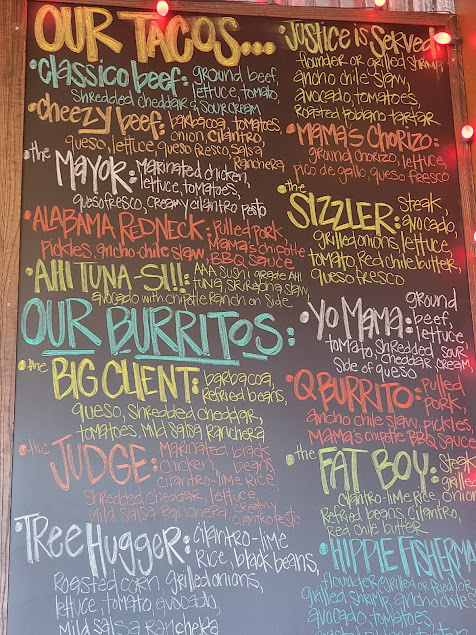 OUR TACOS...
• Classico beef: ground beef,
lettuce, tomato,
shredded cheddar & sour cream
• cheezy beef: barbacoa, tomatoes,
onion, cilantro,
queso, lettuce, queso fresco, salsa
ranchera
• the MAYOR: Marinated chicken,
lettuce, tomatoes,
queso fresco, creamy cilantro pesto
• ALABAMA REDNECK: Pulled pork,
pickles, ancho-chile slaw, Mama's chipotle
BBQ sauce
• AHI TUNA-SI!!: AAA sushi grade Ahi
tuna, sriracha slaw,
avocado with chipotle ranch on side
Justice is Served:
flounder or grilled shrimp,
ancho chile slaw,
avocado, tomatoes,
Roasted poblano tartar
• MAMA'S CHORIZO:
ground chorizo, lettuce,
pico de gallo, queso fresco
• the SIZZLER: steak,
avocado,
grilled onions, lettuce
tomato, Red chile butter,
queso fresco
OUR BURRITOS:
• the BIG CLIENT: barbacoa,
refried beans,
queso, shredded cheddar,
tomatoes, mild salsa ranchera
• the JUDGE: Marinated black
chicken, beans,
cilantro-lime rice,
shredded cheddar, lettuce,
mild salsa ranchera, creamy
cilantro pesto
• Tree Hugger: cilantro-lime
rice, black beans,
roasted corn, grilled onions,
lettuce, tomato, avocado,
mild salsa ranchera
• YO MAMA: ground
beef,
lettuce,
tomato, shredded sour
cheddar, cream,
side of queso
• Q BURRITO: Pulled
pork,
ancho chile slaw, pickles,
Mama's chipotle BBQ sauce
• the FAT BOY: steak
grilled
cilantro-lime rice, onion
Refried beans, cilantro,
Red chile butter
• HIPPIE FISHERMA
flounder (grilled or fried) or
grilled shrimp, ancho chile
slaw, avocado, tomatoes,